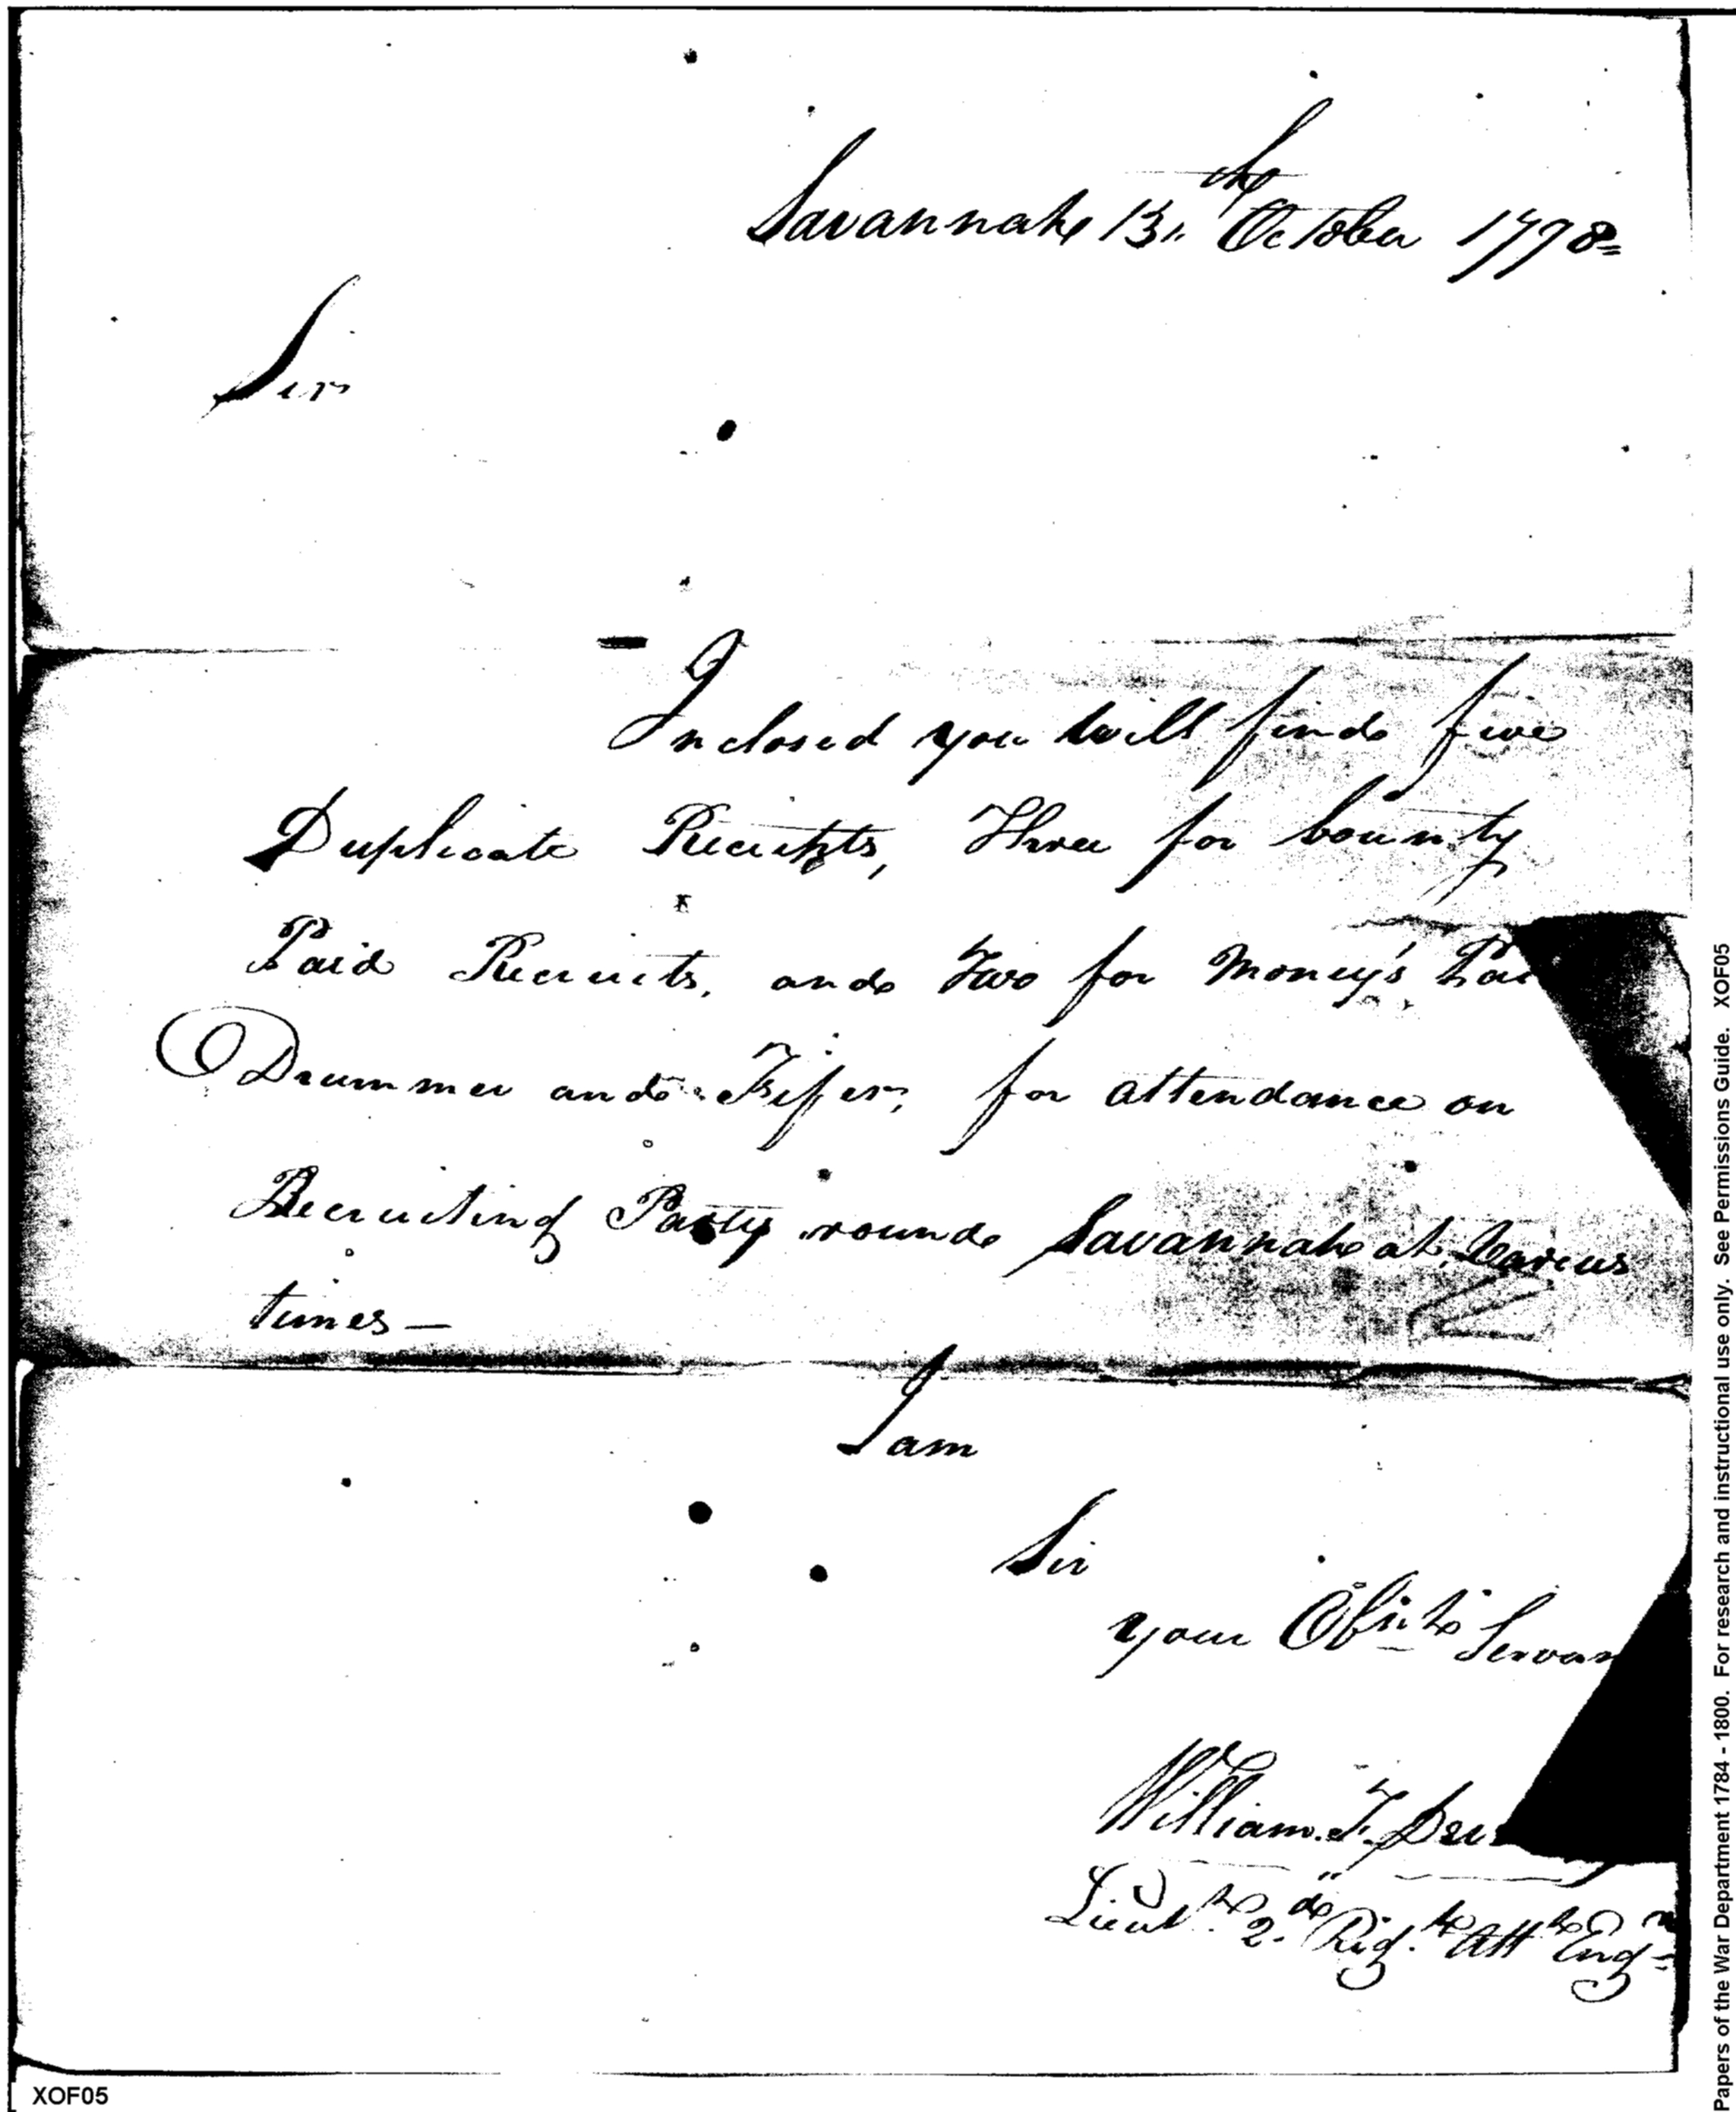 Savannah 13th October 1798
Sir
Inclosed you will find five
Duplicate Receipts, Three for bounty
Paid Recruits, and Two for Money's Pai
Drummer and Fifer, for attendance on
Recruiting Party round Savannah at Varius
times —
I am
Sir
your Obnt Servan
William. T. De
Lieut 2nd Regt Att Engn
Papers of the War Department 1784 - 1800. For research and instructional use only. See Permissions Guide. XOF05
XOF05